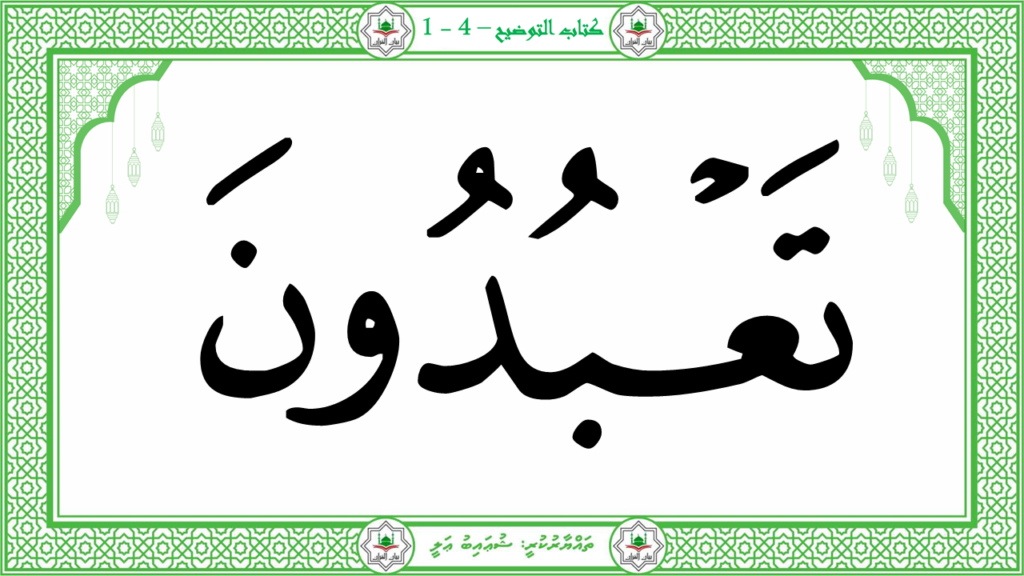 كتاب التوضيح – 4 - 1
تَعْبُدُونَ
ތައްޔާރުކުރީ: ޝުޢައިބު ޢަލީ